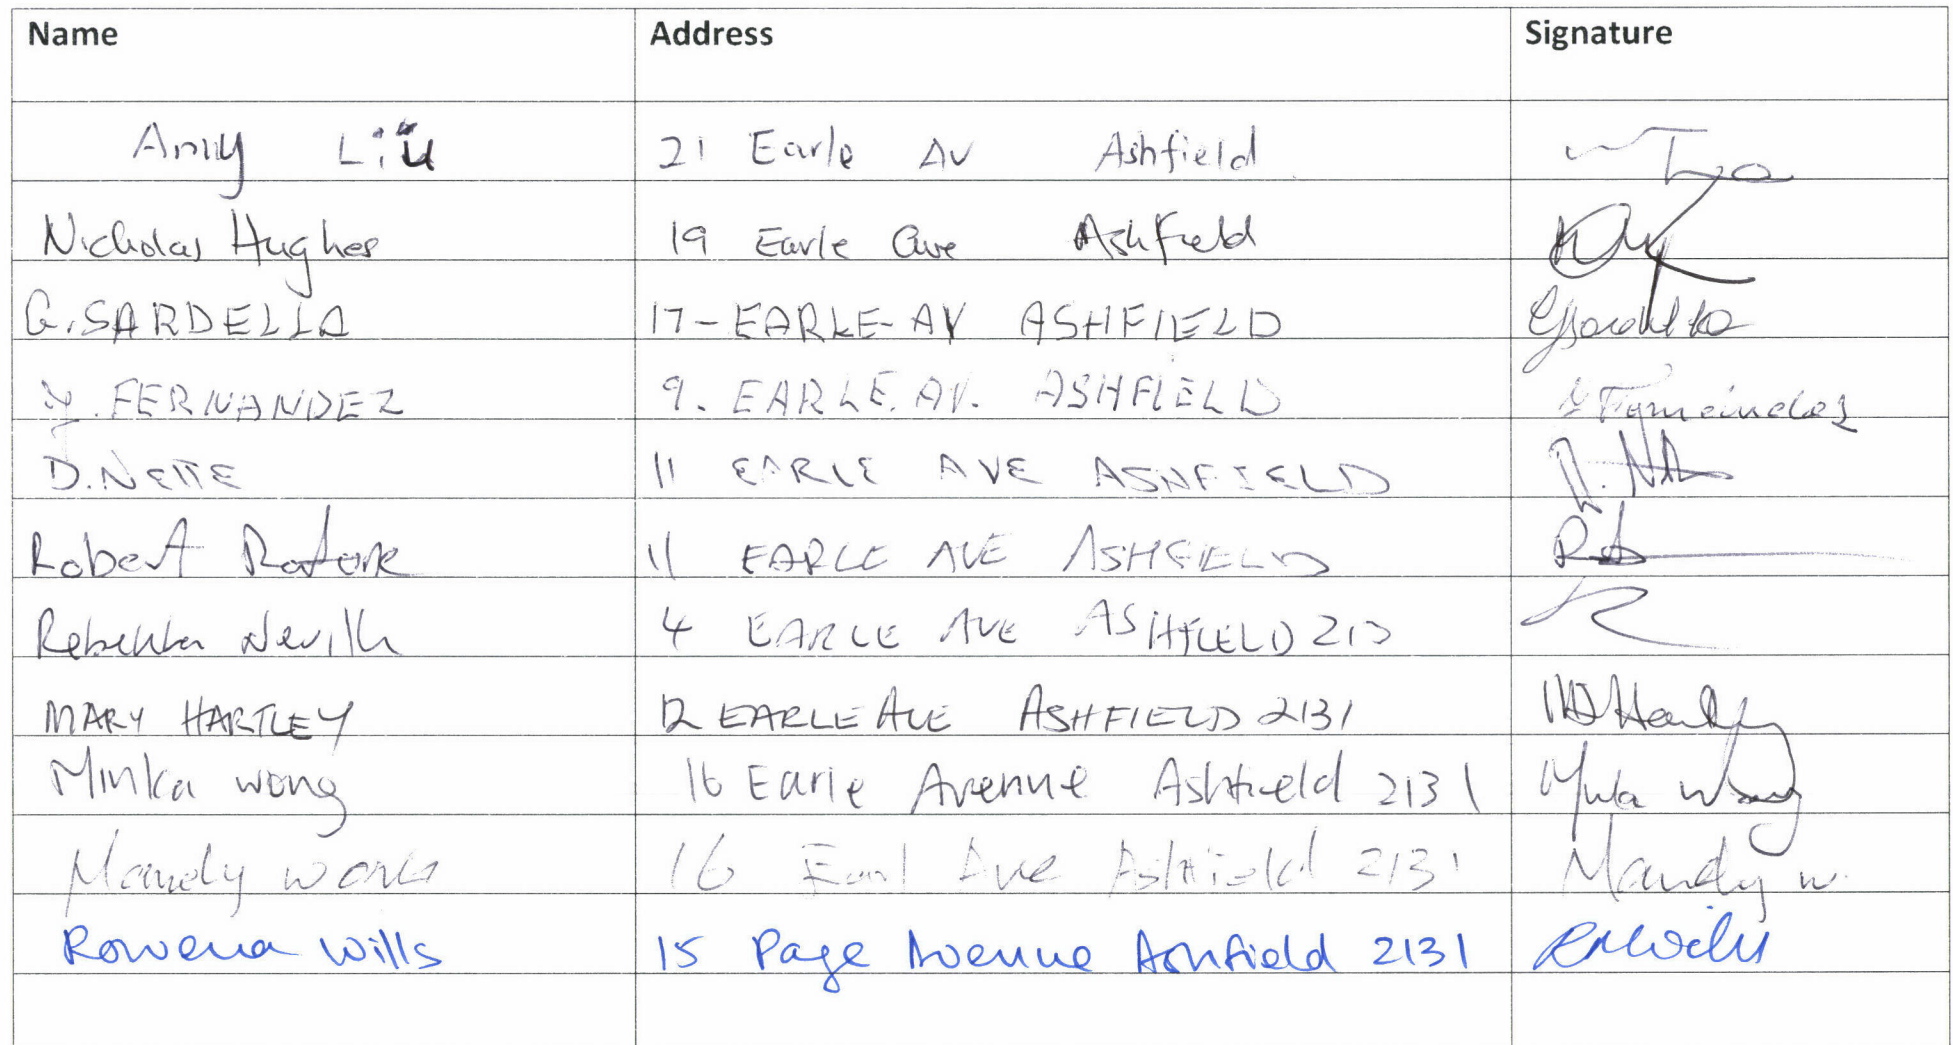 Name Address Signature
Amy Liu 21 Earle Av Ashfield
Nicholas Hughes 19 Earle Ave Ashfield
G. SARDELLA 17-EARLE-AV ASHFIELD
Y. FERNANDEZ 9. EARLE. AV. ASHFIELD
D. NETTE 11 EARLE AVE ASHFIELD D. N
Robert 11 EARLE AVE ASHFIELD
Rebekka Neville 4 EARLE AVE ASHFIELD 213
MARY HARTLEY 12 EARLE AVE ASHFIELD 2131 Hartley
Minka wong 16 Earle Avenue Ashfield 2131 Minka Wong
Mandy wong 16 Earl Ave Ashfield 2131 Mandy w.
Rowena Wills 15 Page Avenue Ashfield 2131 RMWills